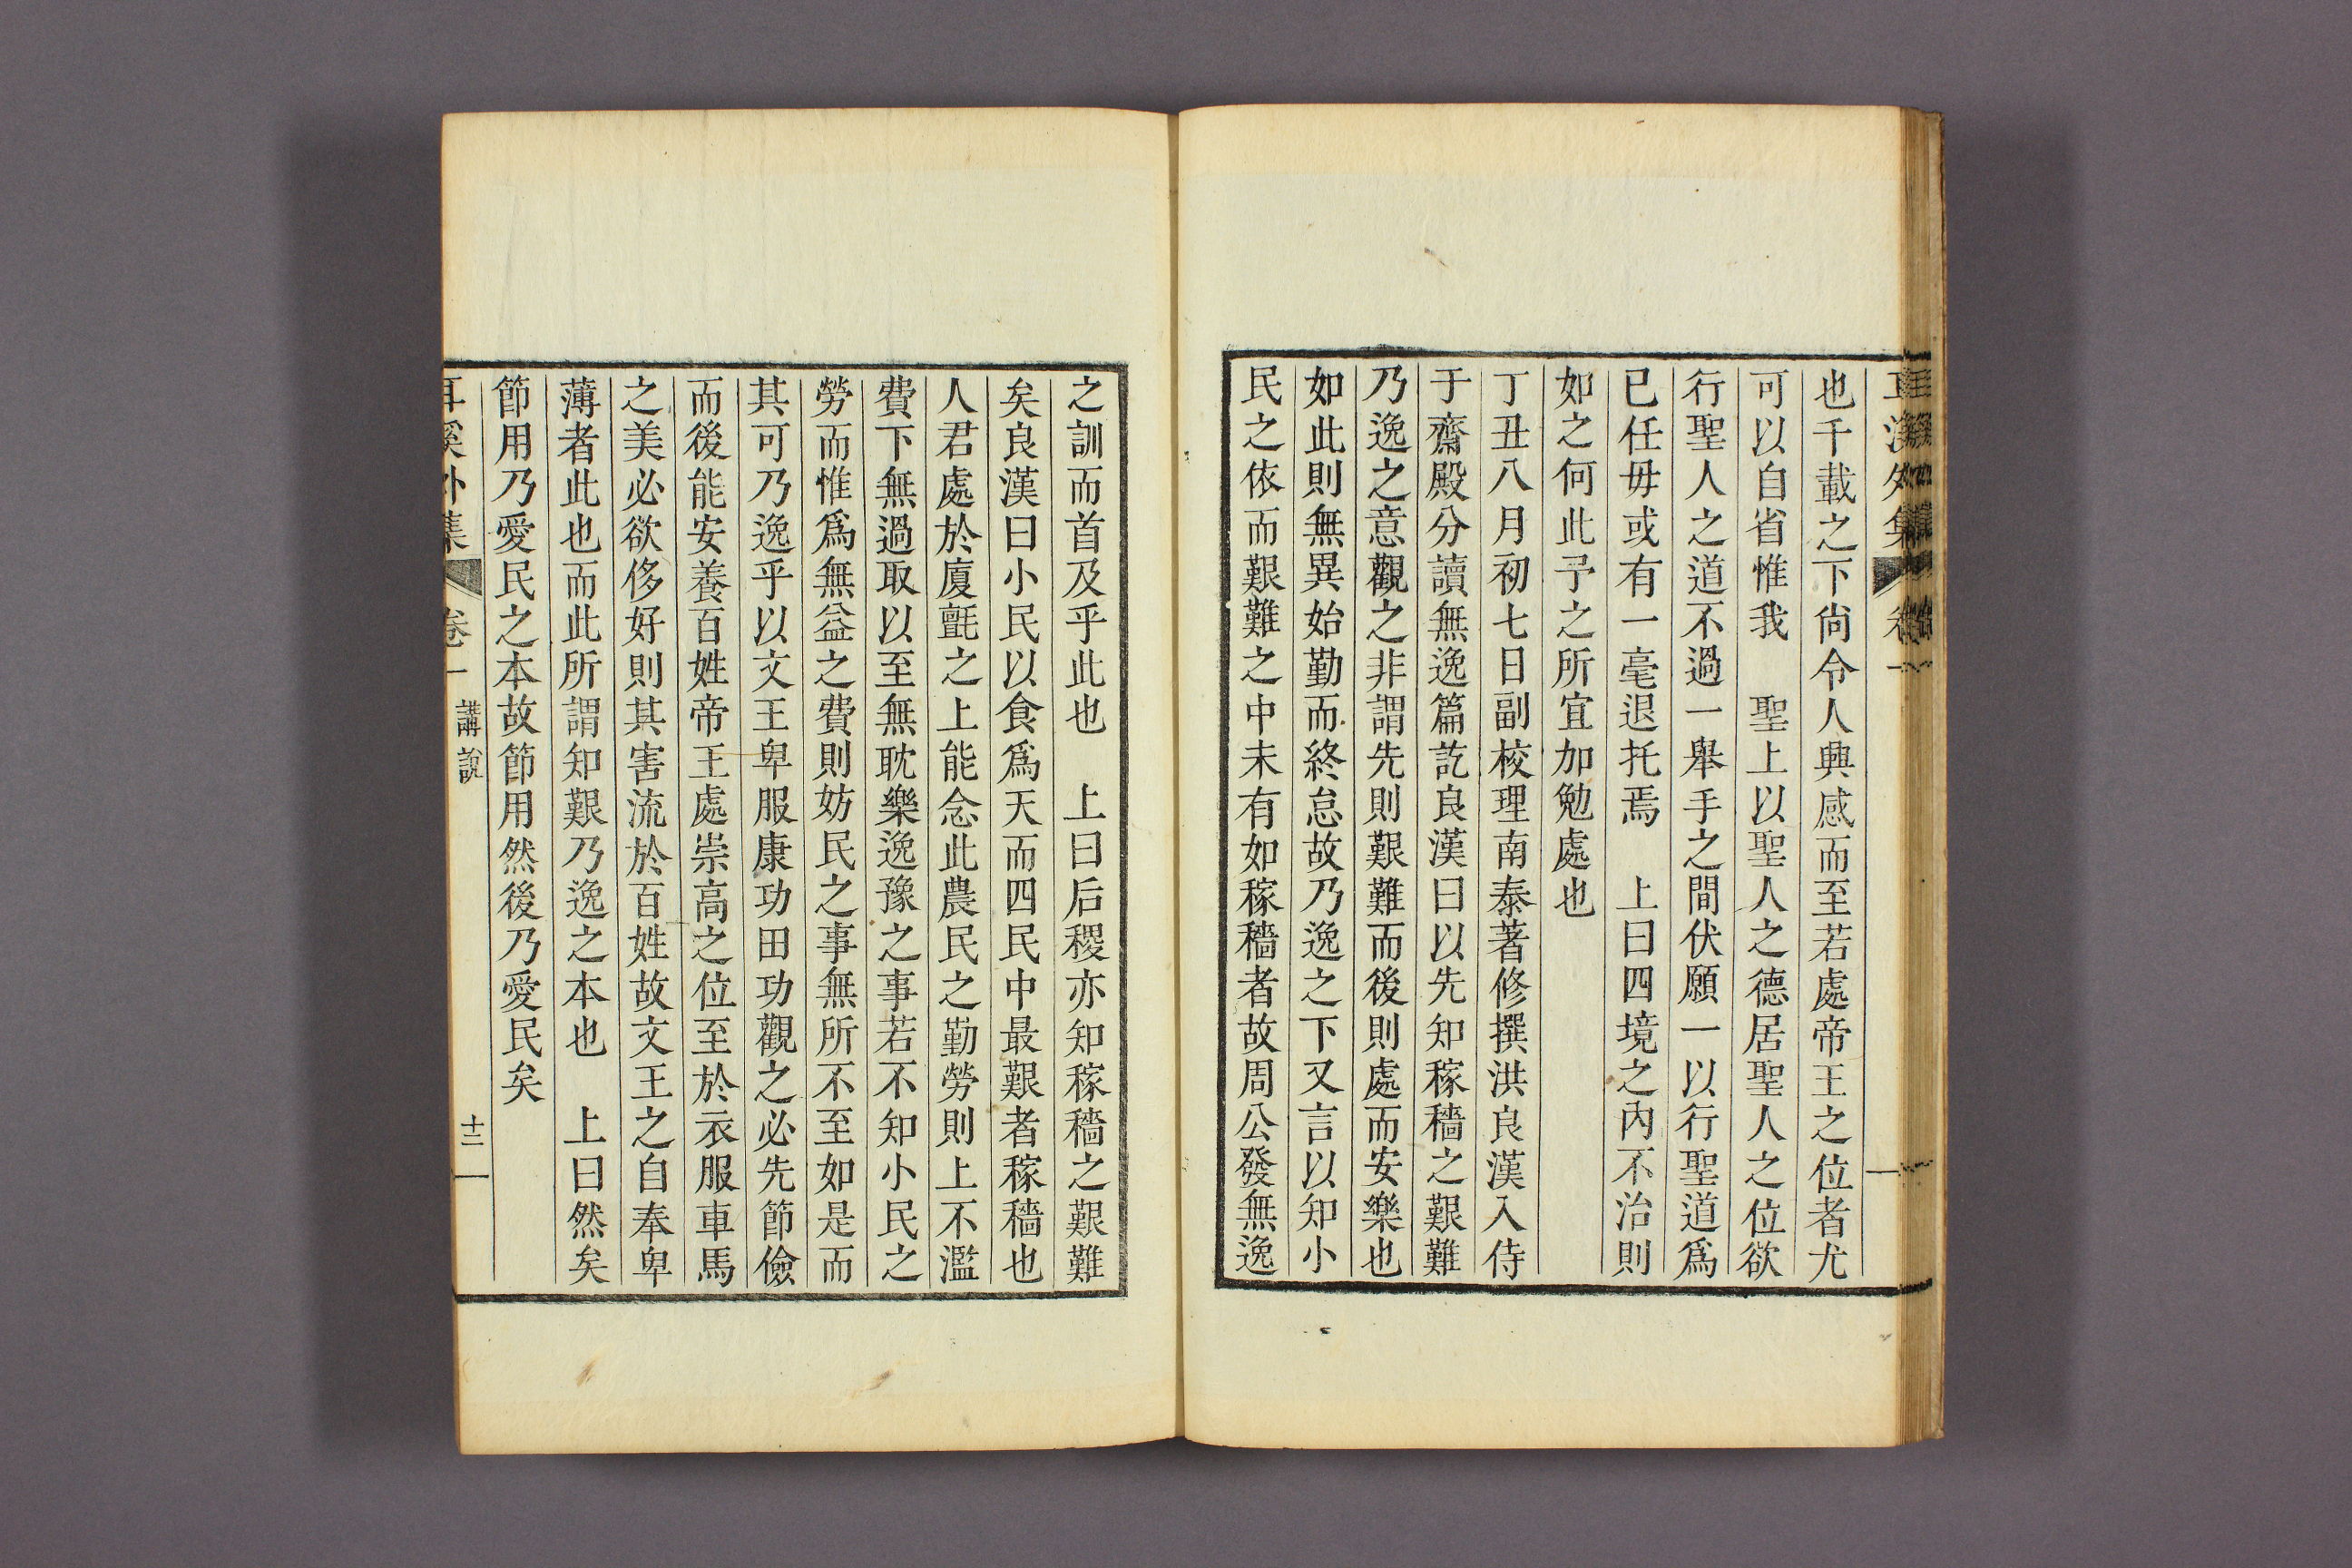 也千載之下尙令人興感而至若處帝王之位者尤
可以自省惟我　聖上以聖人之德居聖人之位欲
行聖人之道不過一舉手之間伏願一以行聖道爲
已任毋或有一毫退托焉　上曰四境之內不治則
如之何此予之所宜加勉處也
丁丑八月初七日副校理南泰著修撰洪良漢入侍
于齋殿分讀無逸篇訖良漢曰以先知稼穡之艱難
乃逸之意觀之非謂先則艱難而後則處而安樂也
如此則無異始勤而終怠故乃逸之下又言以知小
民之依而艱難之中未有如稼穡者故周公發無逸
之訓而首及乎此也　上曰后稷亦知稼穡之艱難
矣良漢曰小民以食爲天而四民中最艱者稼穡也
人君處於廈氈之上能念此農民之勤勞則上不濫
費下無過取以至無耽樂逸豫之事若不知小民之
勞而惟爲無益之費則妨民之事無所不至如是而
其可乃逸乎以文王卑服康功田功觀之必先節儉
而後能安養百姓帝王處崇高之位至於衣服車馬
之美必欲侈好則其害流於百姓故文王之自奉卑
薄者此也而此所謂知艱乃逸之本也　上曰然矣
節用乃愛民之本故節用然後乃愛民矣
耳溪外集　卷一　講說　十二